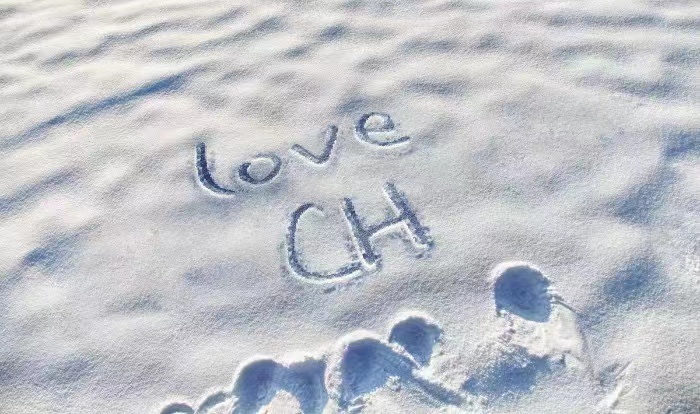 love
CH